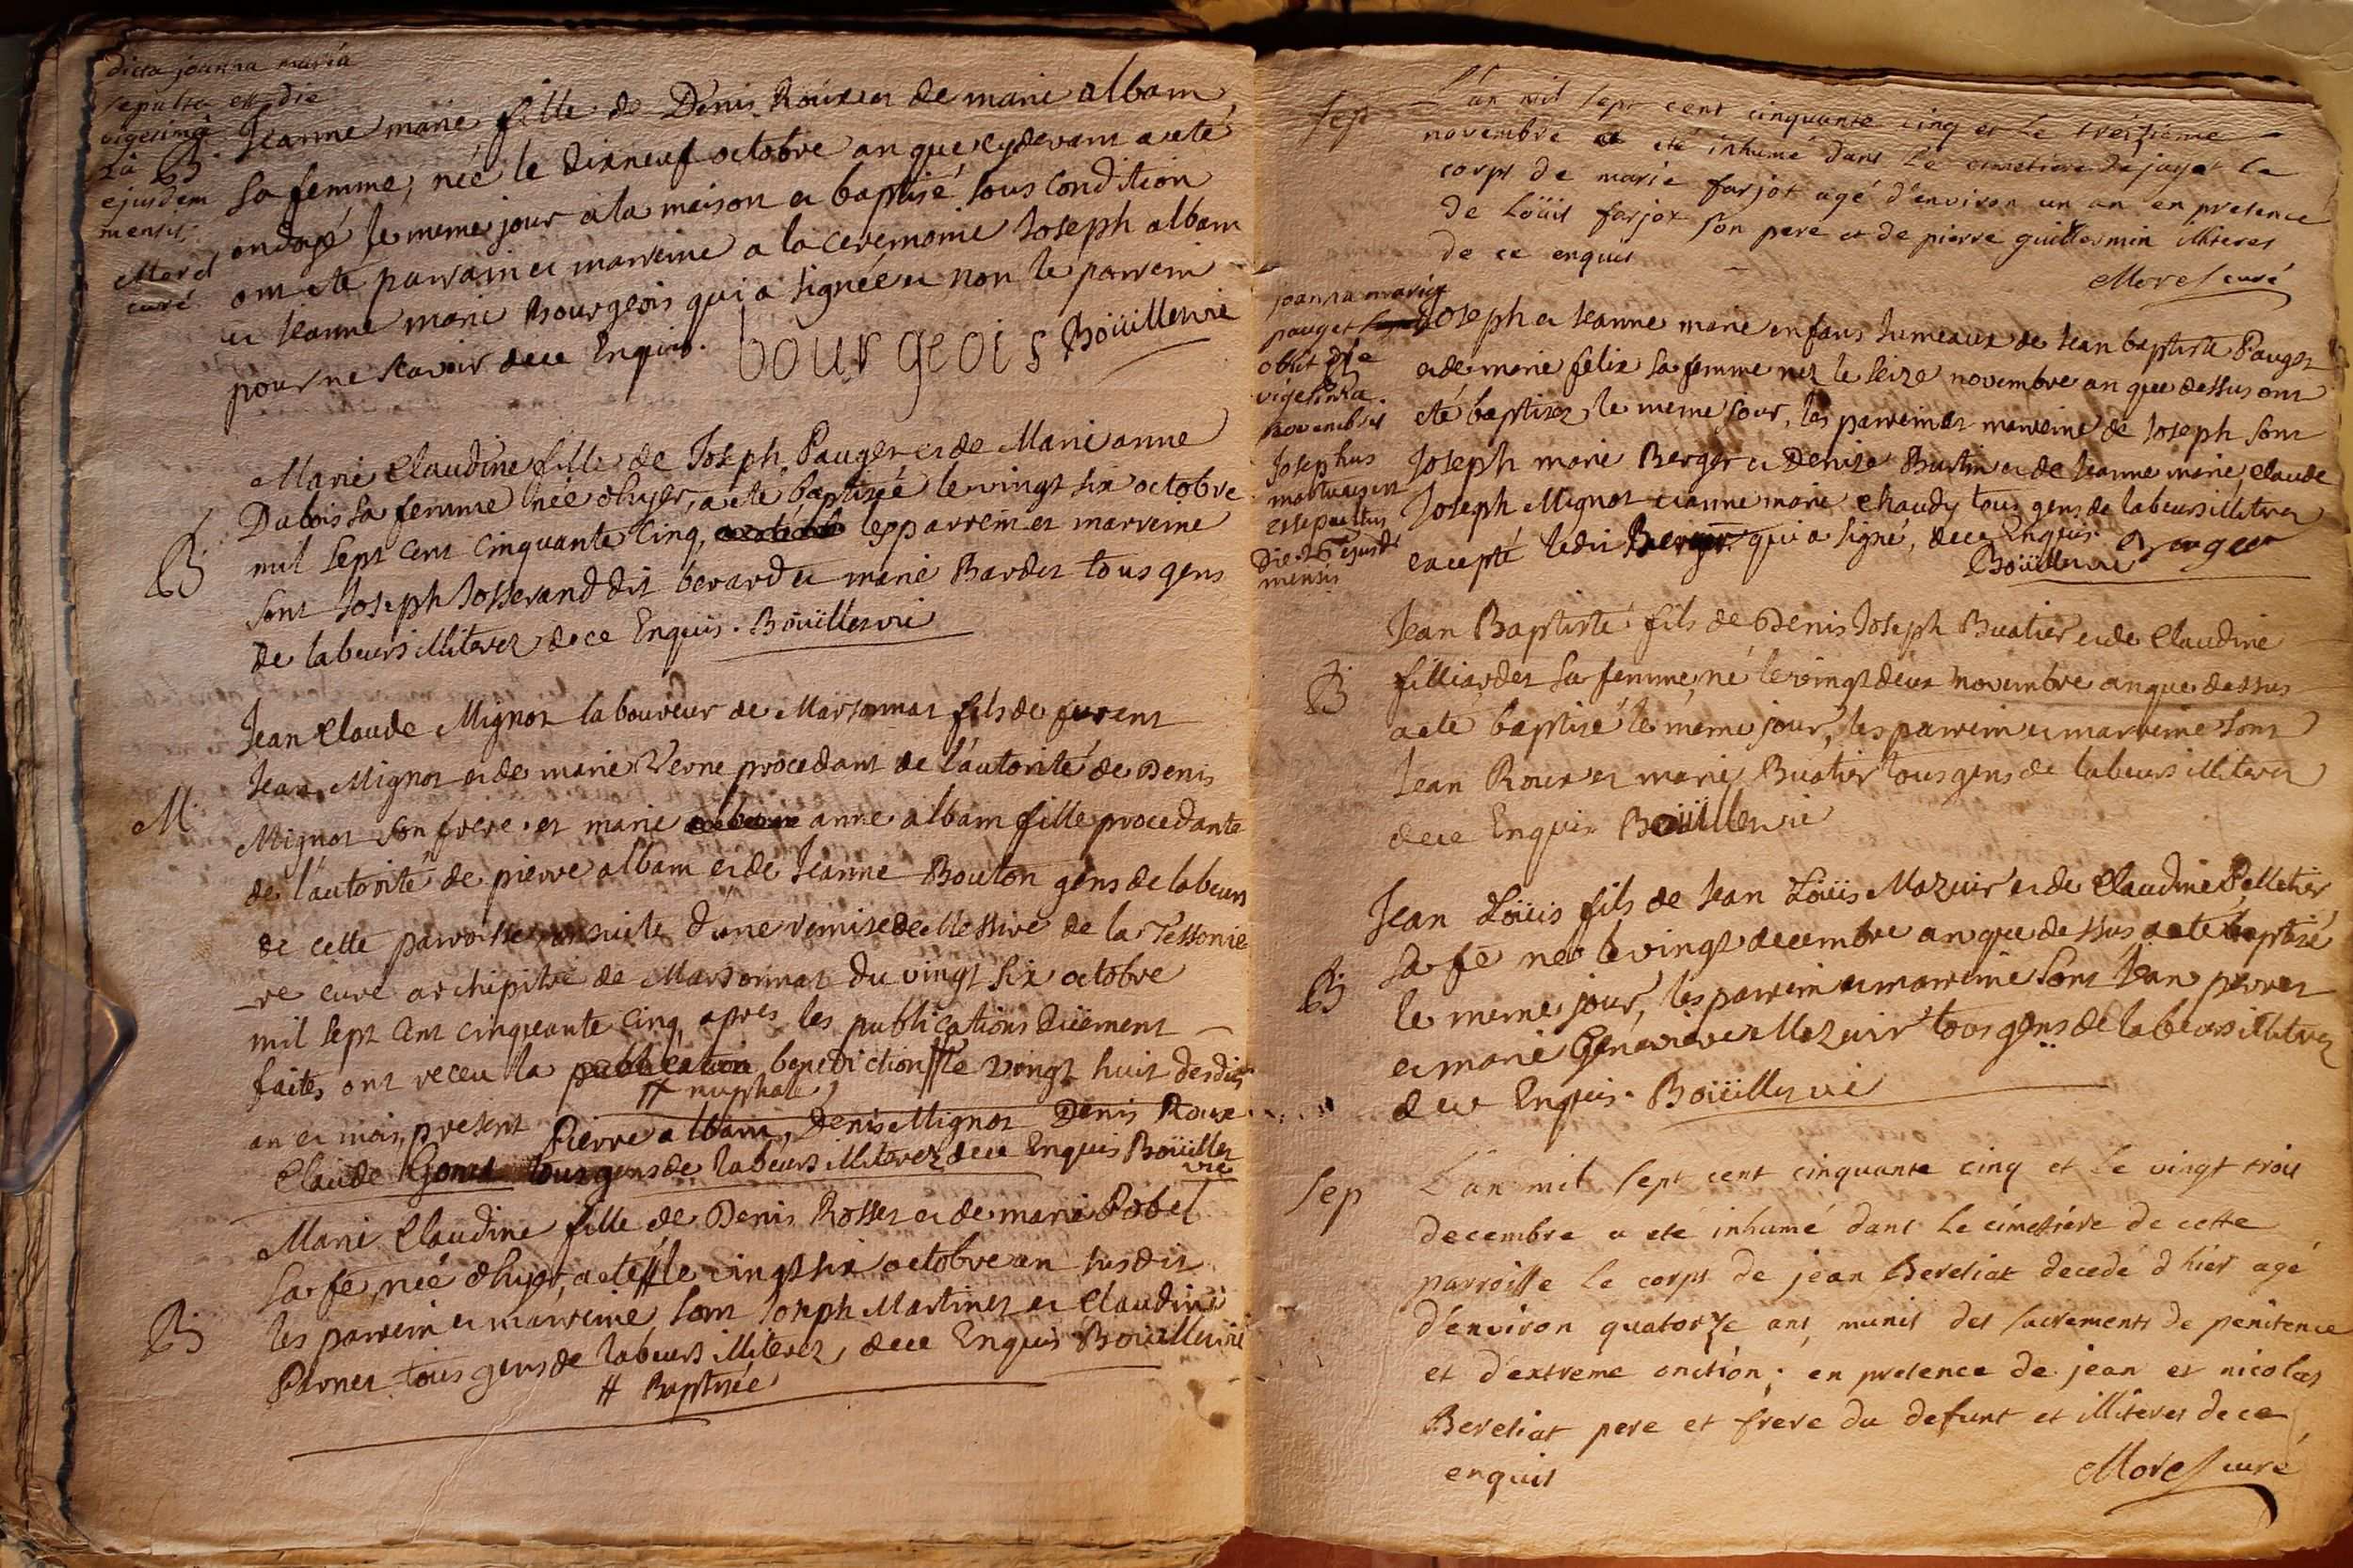 dicta joanna maria
sepulta est die
vigesima
2a B
ejusdem
mensis
Morel
curé
Jeanne marie fille de Denis Roux et de marie albam
sa femme, née le dixneuf octobre an que cydevant a eté
ondoyé le meme jour a la maison et baptisé sous condition
ont eté parrain et marreine a la ceremonie Joseph albam
et Jeanne marie Bourgeois qui a signée et non le parrein
pour ne scavoir de ce Enquis. bourgeois Boüillervie
B
Marie Claudine fille de Joseph Pauget et de Marie anne
Dubois sa femme née d'hyer, a eté baptisée le vingt six octobre
mil sept cent cinquante cinq, les parrein et marreine
sont Joseph Josserand dit berard et marie Bardet tous gens
de labeurs illiterez de ce Enquis. Boüillervie
M
Jean Claude Mignot laboureur de Marsonnat fils de furent
Jean Mignot et de marie Verne procedant de l'autorité de Denis
Mignot son frere et marie anne albam fille procedante
de l'autorité de pierre albam et de Jeanne Bouton gens de labeurs
de cette parroisse ensuite d'une remise de Messire de la Tessonie
-re curé archipitre de Marsonnat du vingt six octobre
mil sept cent cinquante cinq, apres les publications düement
faites ont receu la publication benediction # le vingt huit desdits
# nuptiale
an et mois, present Pierre albam, Denis Mignot Denis Roux
Claude Gonet tous gens de labeurs illiterez de ce Enquis Boüiller
vie
B
Marie Claudine fille de Denis Rosset et de marie Pobel
sa fe, née d'hyer, a eté # le vingt six octobre an susdit
les parrein et marreine sont Joseph Martinet et Claudine
Pernet tous gens de labeurs illiterez, de ce Enquis Boüillervie
# Baptisée
Sep
L'an mil sept cent cinquante cinq et le treizieme
novembre a eté inhumé dans le cimetiere de jayat le
corps de marie farjot agé d'environ un an en presence
de Loüis farjot son pere et de pierre guillermin illiteres
de ce enquis
Morel curé
joanna maria
pauget
obiit die
vigesima
novembris
Josephus
mortuus est
et sepultus
die 26 ejusd
mensis
Joseph et Jeanne marie enfans Jumeaux de Jean baptiste Pauget
et de marie felix sa femme nez le seize novembre an que dessus ont
eté baptisez le meme jour, les parrein et marreine de Joseph sont
Joseph marie Berger et Denise Burtin et de Jeanne marie, Claude
Joseph Mignot et anne marie Chaudy tous gens de labeurs illiterez
excepté ledit Berger qui a signé, de ce Enquis.
Boüillervie Berger
B
Jean Baptiste fils de Denis Joseph Buatier et de Claudine
filliardet sa femme, né le vingt deux novembre an que dessus
a eté baptisé le meme jour, les parrein et marreine sont
Jean Roux et marie Buatier tous gens de labeurs illiterez
de ce Enquis Boüillervie
B
Jean Loüis fils de Jean Loüis Mazuir et de Claudine Pelletier
sa fe né le vingt decembre an que dessus a eté baptisé
le meme jour, les parrein et marreine sont Jean perret
et marie Genevieve Mazuir tous gens de labeurs illiterez
de ce Enquis. Boüillervie
Sep
L'an mil sept cent cinquante cinq et le vingt trois
decembre a eté inhumé dans le cimetiére de cette
parroisse le corps de jean Bereliat decedé d'hier agé
d'environ quatorze ans, munis des sacrements de penitence
et d'extreme onction; en presence de jean et nicolas
Bereliat pere et frere du defunt et illiteres de ce
enquis
Morel curé